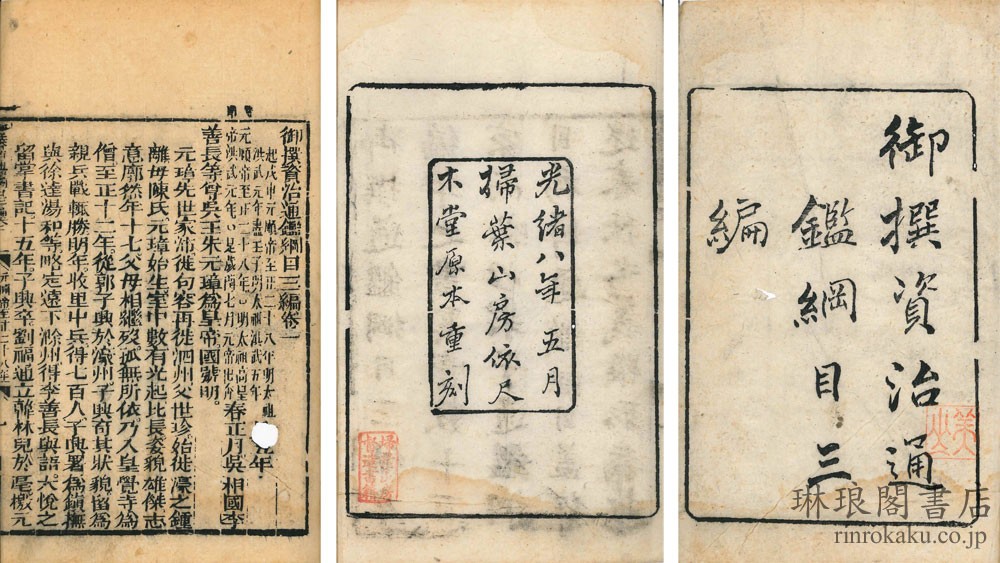 御撰資治通
鑑綱目三
編
光緒八年五月
掃葉山房依尺
木堂原本重刻
御撰資治通鑑綱目三編卷一
起戊申元順帝至正二十八年明太祖
洪武元年盡壬子明太祖洪武五年
元順帝至正二十八年明太祖高皇
帝洪武元年
春正月吳相國李
善長等尊吳王朱元璋爲皇帝國號明
元璋先世家沛徙句容再徙泗州父世珍始徙濠之鍾
離母陳氏元璋始生室中數有光起比長姿貌雄傑志
意廓然年十七父母相繼歿孤無所依乃入皇覺寺爲
僧至正十二年從郭子興於濠州子興奇其狀貌留爲
親兵戰輒勝明年收里中兵得七百人子興署爲鎮撫
與徐達湯和等略定遠下滁州得李善長與語大悅之
留掌書記十五年子興卒劉福通立韓林兒於亳檄元
琳琅閣書店
rinrokaku.co.jp